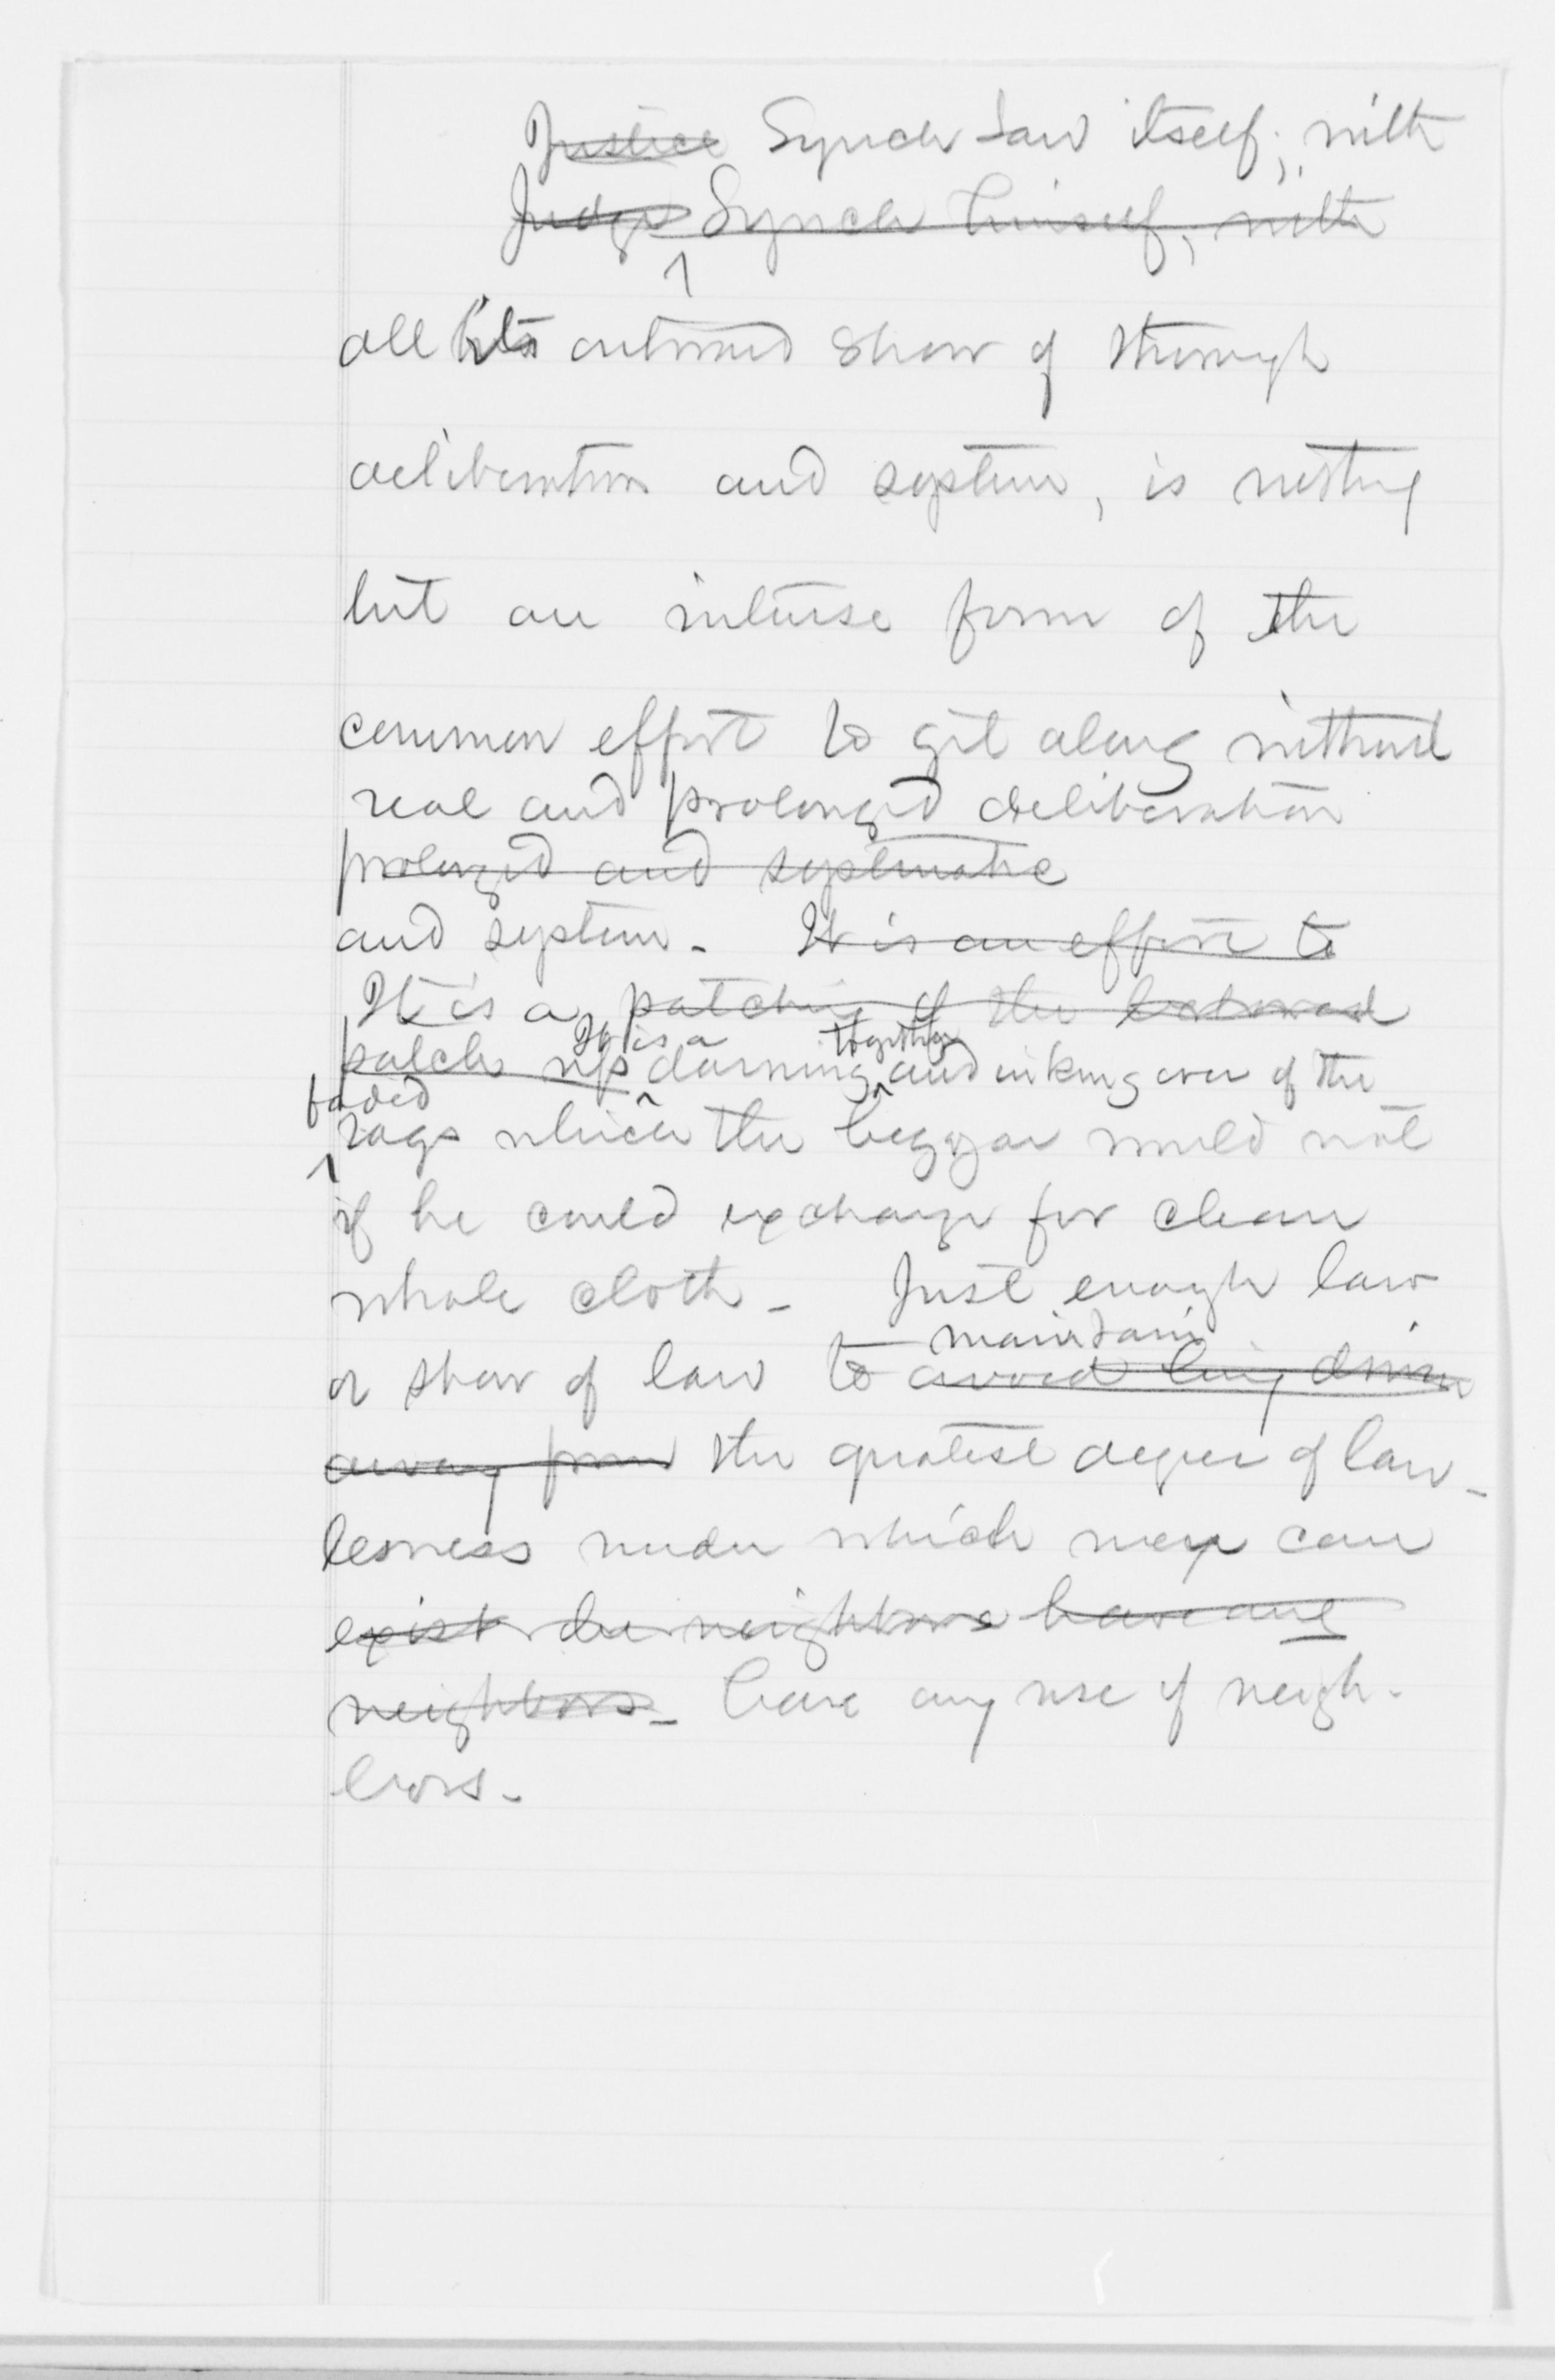 Justice Lynch Law itself, with
Judge Lynch himself, with
all its outward show of through
deliberation and system, is nothing
but an intense form of the
common effort to get along without
real and prolonged deliberation
prolonged and systematic
and system. It is an effort to
It is a patching of the
It is a together
patch up darning and inking over of the
faded
rags which the beggar would not
if he could exchange for clean
whole cloth. Just enough law
maintain
or show of law to avoid being driven
away from the greatest degree of law-
lessness under which men can
exist neighbors have any
neighbors. have any use of neigh-
bors.